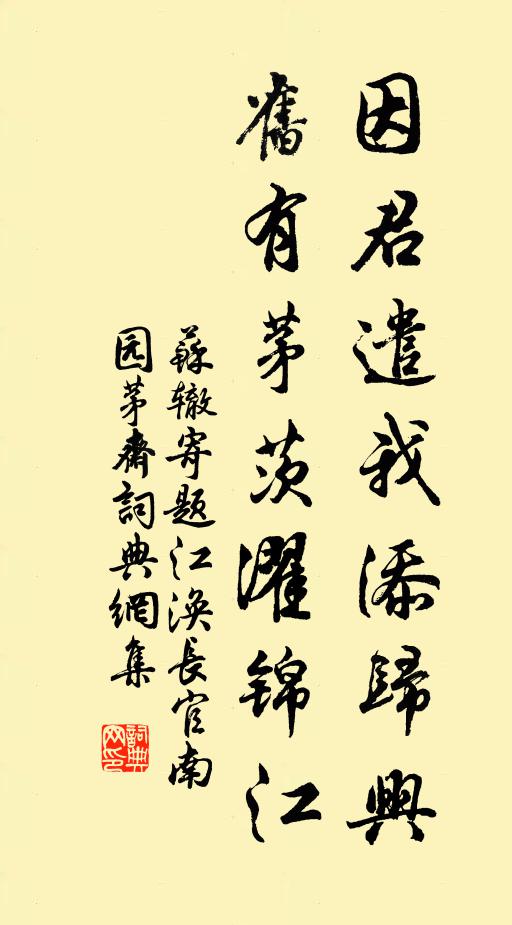 因君遣我添歸興
舊有茅茨濯錦江
蘇辙寄题江涣長官南
园茅齋詞典網集
詞典
网印